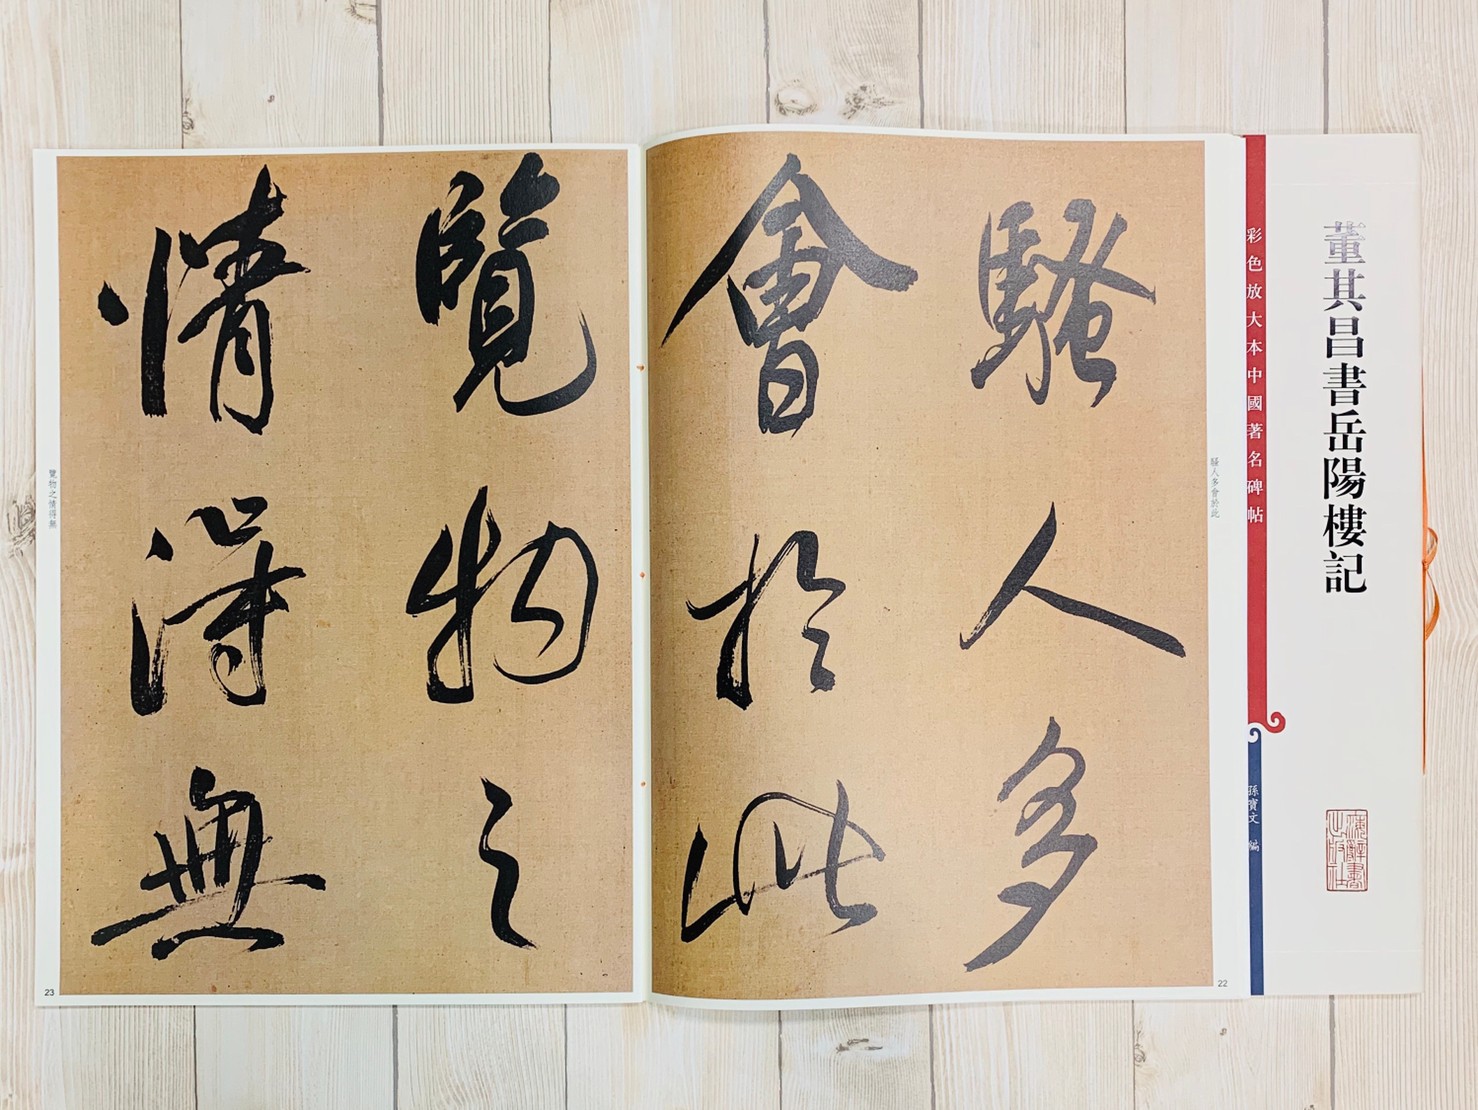 董其昌書岳陽樓記
彩色放大本中國著名碑帖
孫寶文 編
騷人多
會於此
騷人多會於此
22
覽物之
情得無
覽物之情得無
23